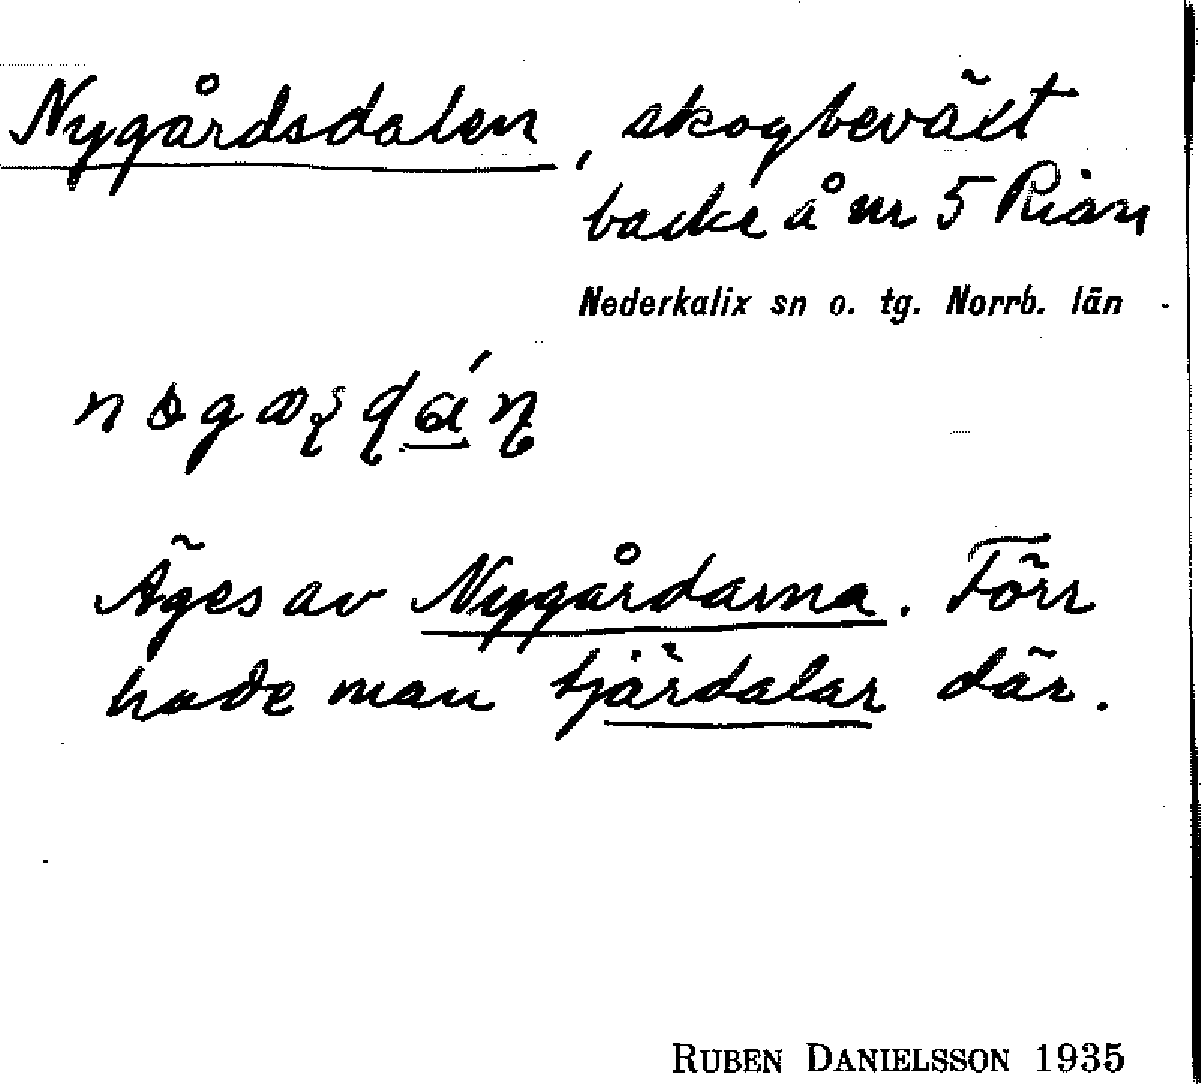 Nygårdsdalen, skogbeväxt
backe å nr 5 Rian
Nederkalix sn o. tg. Norrb. län
Äges av Nygårdarna. Förr
hade man tjärdalar där.
RUBEN DANIELSSON 1935